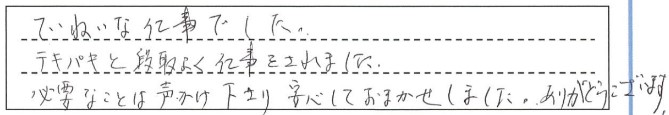 ていねいな仕事でした。
テキパキと段取よく仕事をされました。
必要なことは声かけ下さり安心しておまかせしました。ありがとうございます。